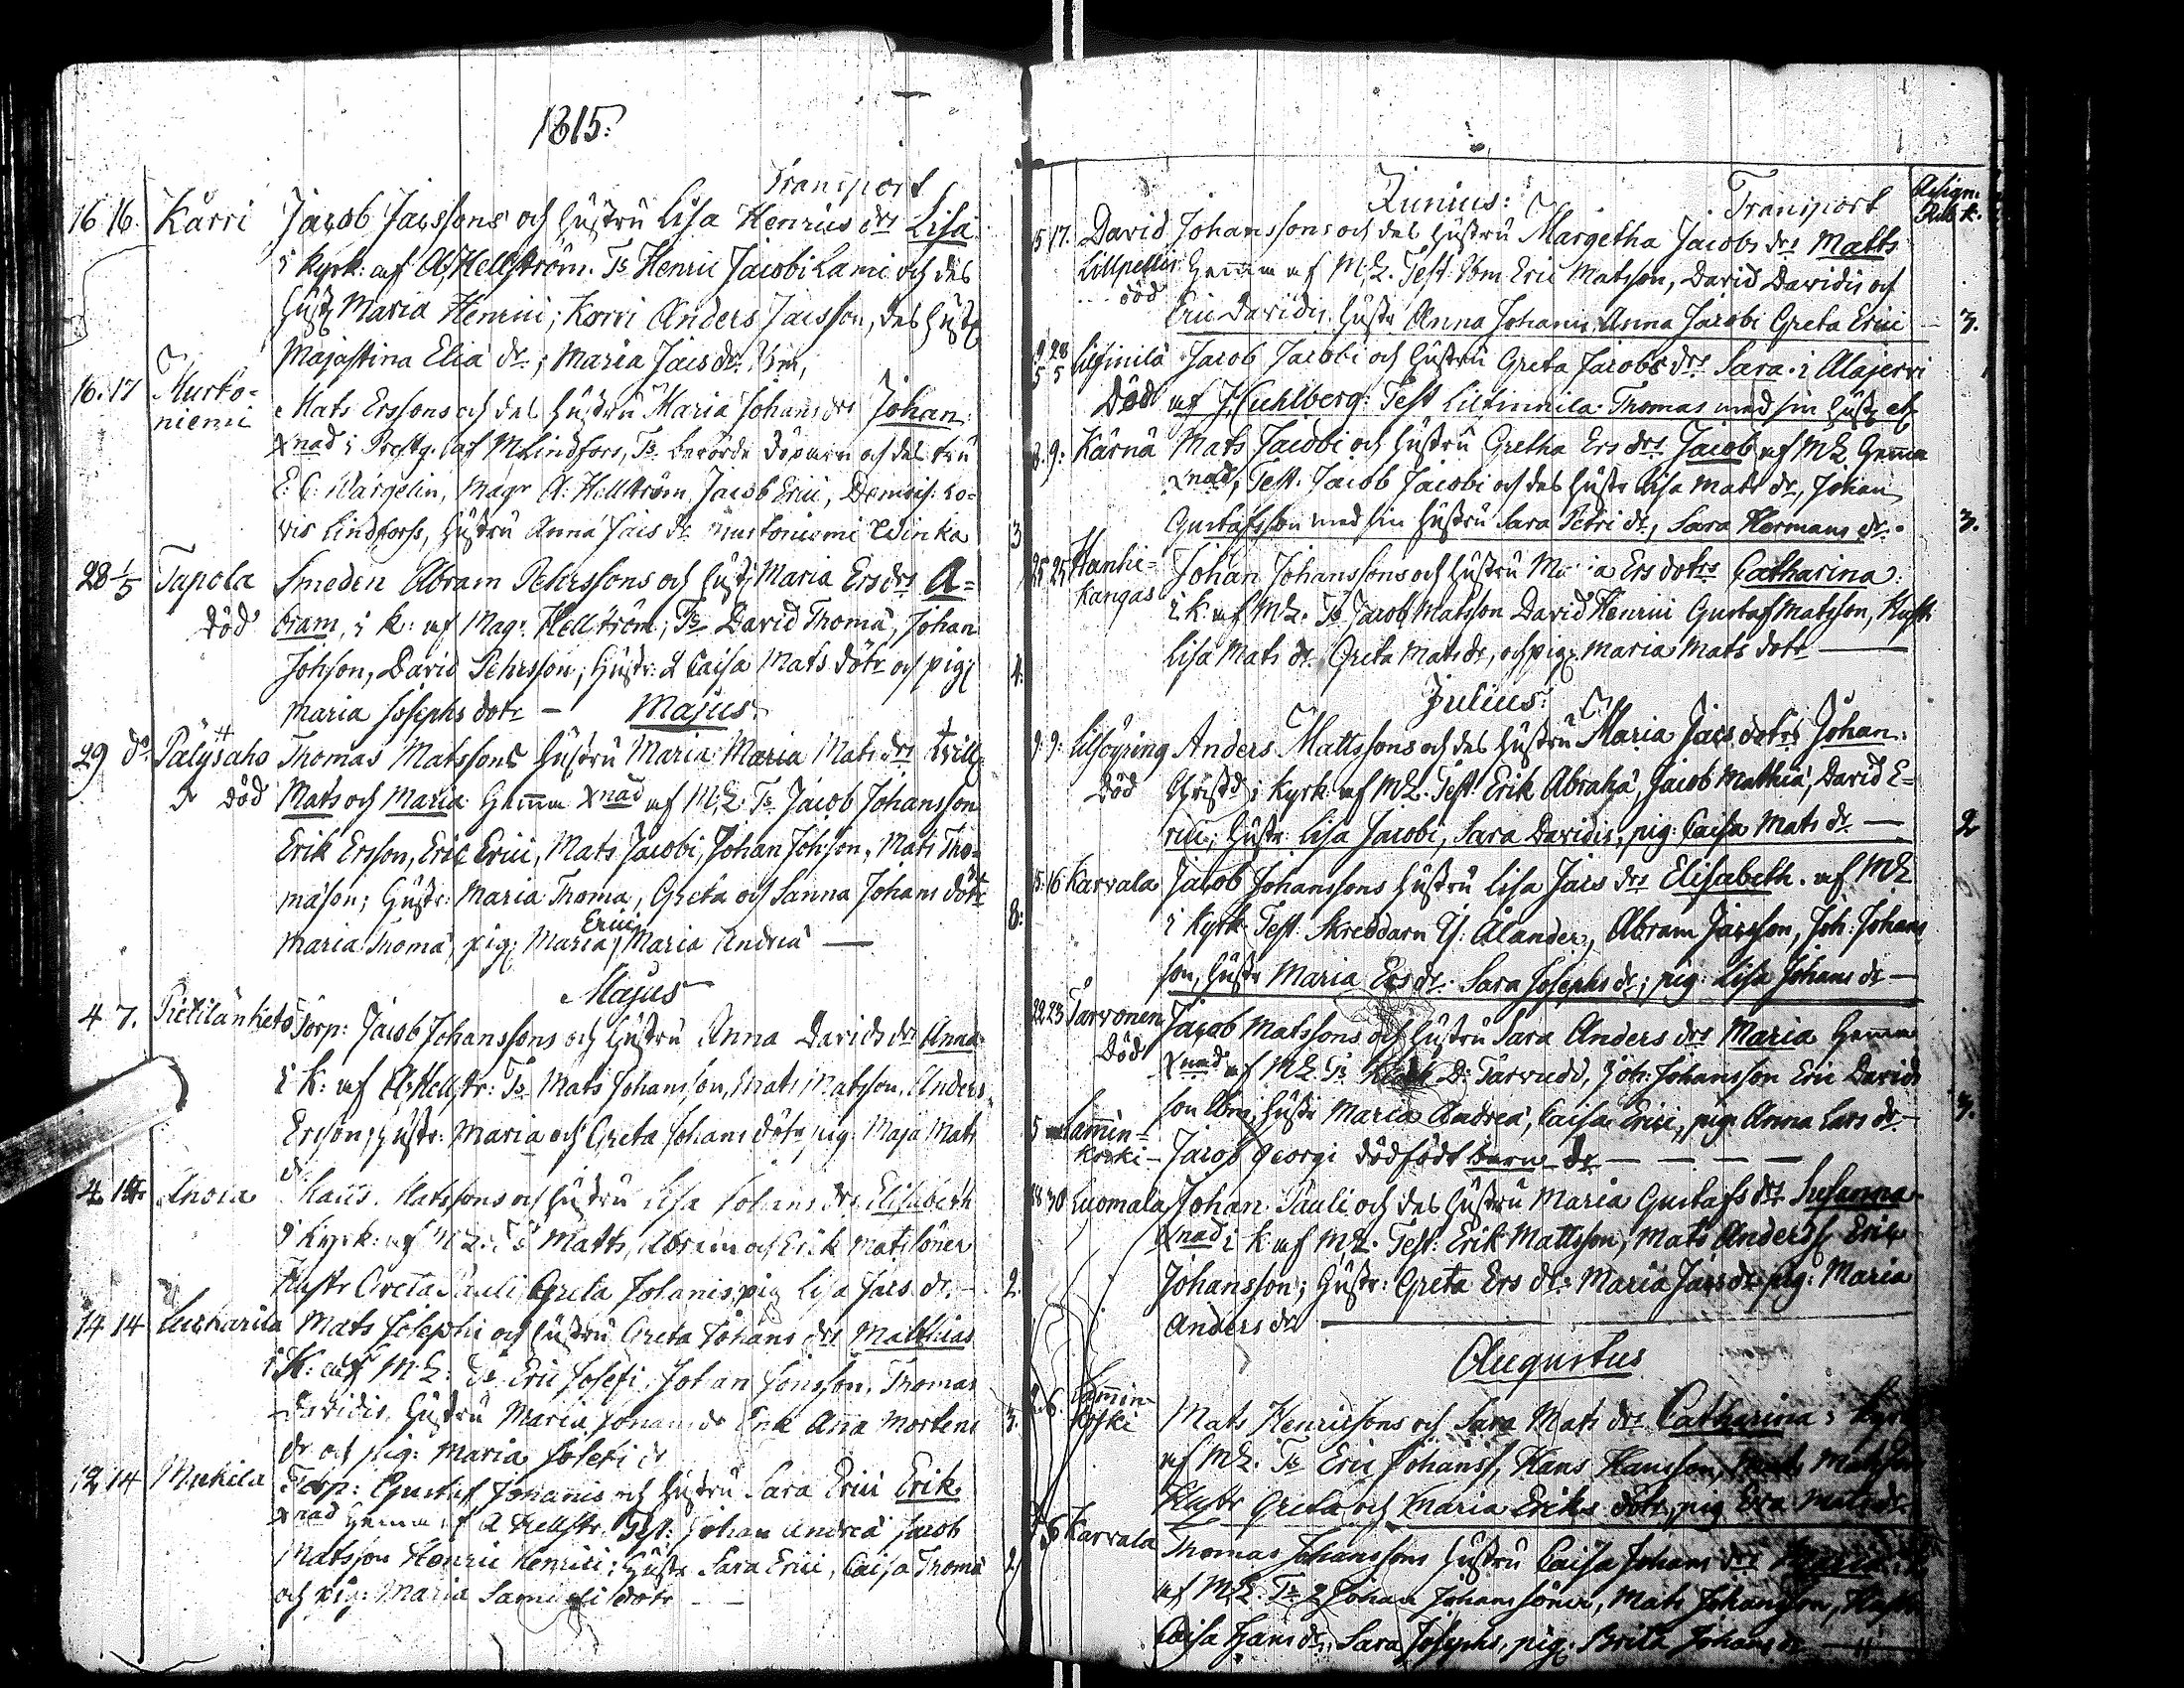 1815.
Transport
16 16. Kärri Jacob Jacssons och hustru Lisa Henrics drs Lisa
i Kyrk: af A. Hellström. Ts Henric Jacobi Lami och des
hust Maria Henrici; Korri Anders Jacsson, des hust
Majastina Elia dr; Maria Jacs dr
16. 17 Murto=
niemi Mats Erssons och des hustru Maria Johans drs Johan
Xnad i Prestg. af M Lindfors, Ts. berörde döparen och des fru
E. C. Wargelin, Magr A: Hellström, Jacob Erici, Demois: Lo=
vis Lindforss, hustru Anna Jacs dr Murtoniemi
3
28 1/5 Tapola Smeden Abram Pehrssons och hust Maria Ers drs A=
död bram, i K: af Magr. Hellström; Ts David Thomä, Johan
Johson, David Pehrsson; hustr: Caisa Mats dotr och pig
4.
Maria Josephs dotr — Majus.
29 do Pälysaho Thomas Matssons hustru Maria Maria Mats drs
död Mats och Maria Hemma Xnad af M.L. Ts. Jacob Johansson
Erik Ersson, Eric Erici, Mats Jacobi, Johan Johson, Mats Tho=
mäson; Hustr: Maria Thoma, Greta och Sanna Johans dötr
8:
Erici
Maria Thomä, pig: Maria Maria Andreä —
Majus
4 7. Pietilänketo Torp: Jacob Johanssons och hustru Anna Davids drs Anna
i K: af A. Hellstr: Ts Mats Johansson, Mats Matsson, Anders
Ersson; hustr: Maria och Greta Johans dötr, pig: Maja Mats
dr
4 14 Anola Matssons och hustru Lisa Johans drs Elisabeth
i Kyrk: af M L: Ts Matts, Abram och Erik Matssöner
Hustr Greta Pauli Greta Johanis, pig Lisa Jacs dr. —
2.
14 14 Mats Josephi och hustru Greta Johans drs Matthias
i K: af M. L: Eric Josefi, Johan Jonsson, Thomas
Davidis, hustru Maria Johans dr Enk Anna Mortens
3.
dr och pig: Maria Josefi dr
12 14 Torp: Gustaf Johannis och hustru Sara Erici Erik
Xnad hemma af A Hellstr. Test: Johan Andreä Jacob
Matsson Henric Henrici; hustr Sara Erici, Caisa Thomä
2
och pig: Maria Samueli dotr —
Junius: Transport
Assign.
Rub. k.
15 17. David Johanssons och des hustru Margetha Jacobs drs Matts
Lillpettis Hemma af M.L. Test. Eric Matsson, David Davidis och
död
Eric Davidis hustr Anna Johanis, Anna Jacobi Greta Erici — 3.
Jacob Jacobi och hustru Greta Jacobs drs Sara i Alajerri
Död af J. Cuhlberg: Test Thomas med sin hustr
8. 9: Kärnä Mats Jacobi och hustru Gretha Ers drs Jacob af M L Hemma
Xnad, Test. Jacob Jacobi och des hustr Lisa Mats dr, Johan
Gustafsson med sin hustru Sara Petri dr, Sara Hermans dr. 3.
25 25 Hanhi=
kangas Johan Johanssons och hustru Maria Ers dotrs Catharina:
i K. af M L. Ts Jacob Matsson David Henrici Gustaf Matsson, Hust.
Lisa Mats dr Greta Mats dr, och pig. Maria Mats dotr —
Julius:
9. 9: Lisöyring Anders Mattssons och des hustru Maria Jacs dotrs Johan:
Död Christd i Kyrk af M L. Test. Erik Abrahä, Jacob Mathiä, David E=
rici; hustr Lisa Jacobi, Sara Davidis, pig: Caisa Mats dr — 2
15. 16 Karvala Jacob Johanssons hustru Lisa Jacs drs Elisabeth. af M L
i Kyrk Test Skreddarn Ålander, Abram Jacsson, Joh: Johans
son, hustr Maria Ers dr. Sara Josephs dr; pig: Lisa Johans dr —
22 23 Tarvonen Jacob Matssons och hustru Sara Anders drs Maria Hemma
Död Xnad af M L Ts Tarvudd, Joh: Johansson Eric Davids
son hustr Maria Andreä, Caisa Erici, pig Anna Lars dr — 3.
5 Lamin=
koski — Jacob Georgi dödfödt barn dr — — — —
30 Luomala Johan Pauli och des hustru Maria Gustafs drs Susanna
Xnad i K af M L. Test: Erik Mattsson, Mats Eric
Johansson; hustr: Greta Ers dr: Maria Jacs dr pig: Maria
Anders dr —
Augustus
2. 6. Lamin
koski Mats Henricsons och Sara Mats drs Catharina i Kyrk
af M L. Ts Eric Johanss, Hans Hansson,
Hustr Greta och Maria Eriks dötr, pig Eva Mats dr
6 Karvala Thomas Johanssons hustru Caisa Johans drs
af M L. Ts 2 Johan Johanssöner, Mats Johansson, Hustr
Caisa Hans dr, Sara Josephs, pig: Brita Johans dr —